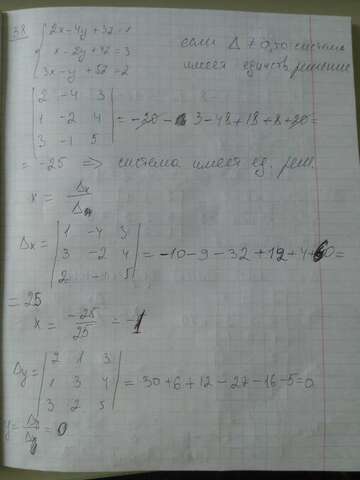 38 { 2x-4y+3z=1
x-2y+4z=3 если Δ ≠ 0, то система
3x-y+5z=2 имеет единств. решение
| 2 -4 3 |
| 1 -2 4 | = -20 - 3-48+18+8+20=
| 3 -1 5 |
= -25 => система имеет ед. реш.
x = Δx / Δ
Δx = | 1 -4 3 |
| 3 -2 4 | = -10-9-32+12+4+60=
| 2 -1 5 |
= 25
x = -25/25 = -1
Δy = | 2 1 3 |
| 1 3 4 | = 30+6+12-27-16-5=0
| 3 2 5 |
y = Δ / Δy = 0